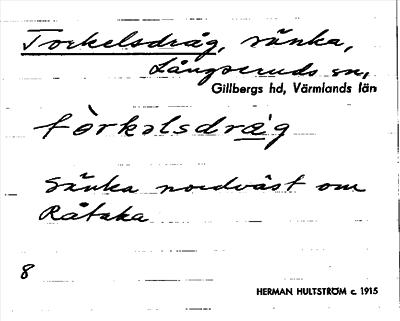 Torkelsdråg, sänka,
Långseruds sn,
Gillbergs hd, Värmlands län
tòrkəlsdrág
Sänka nordväst om
Råtaka
8
HERMAN HULTSTRÖM c. 1915